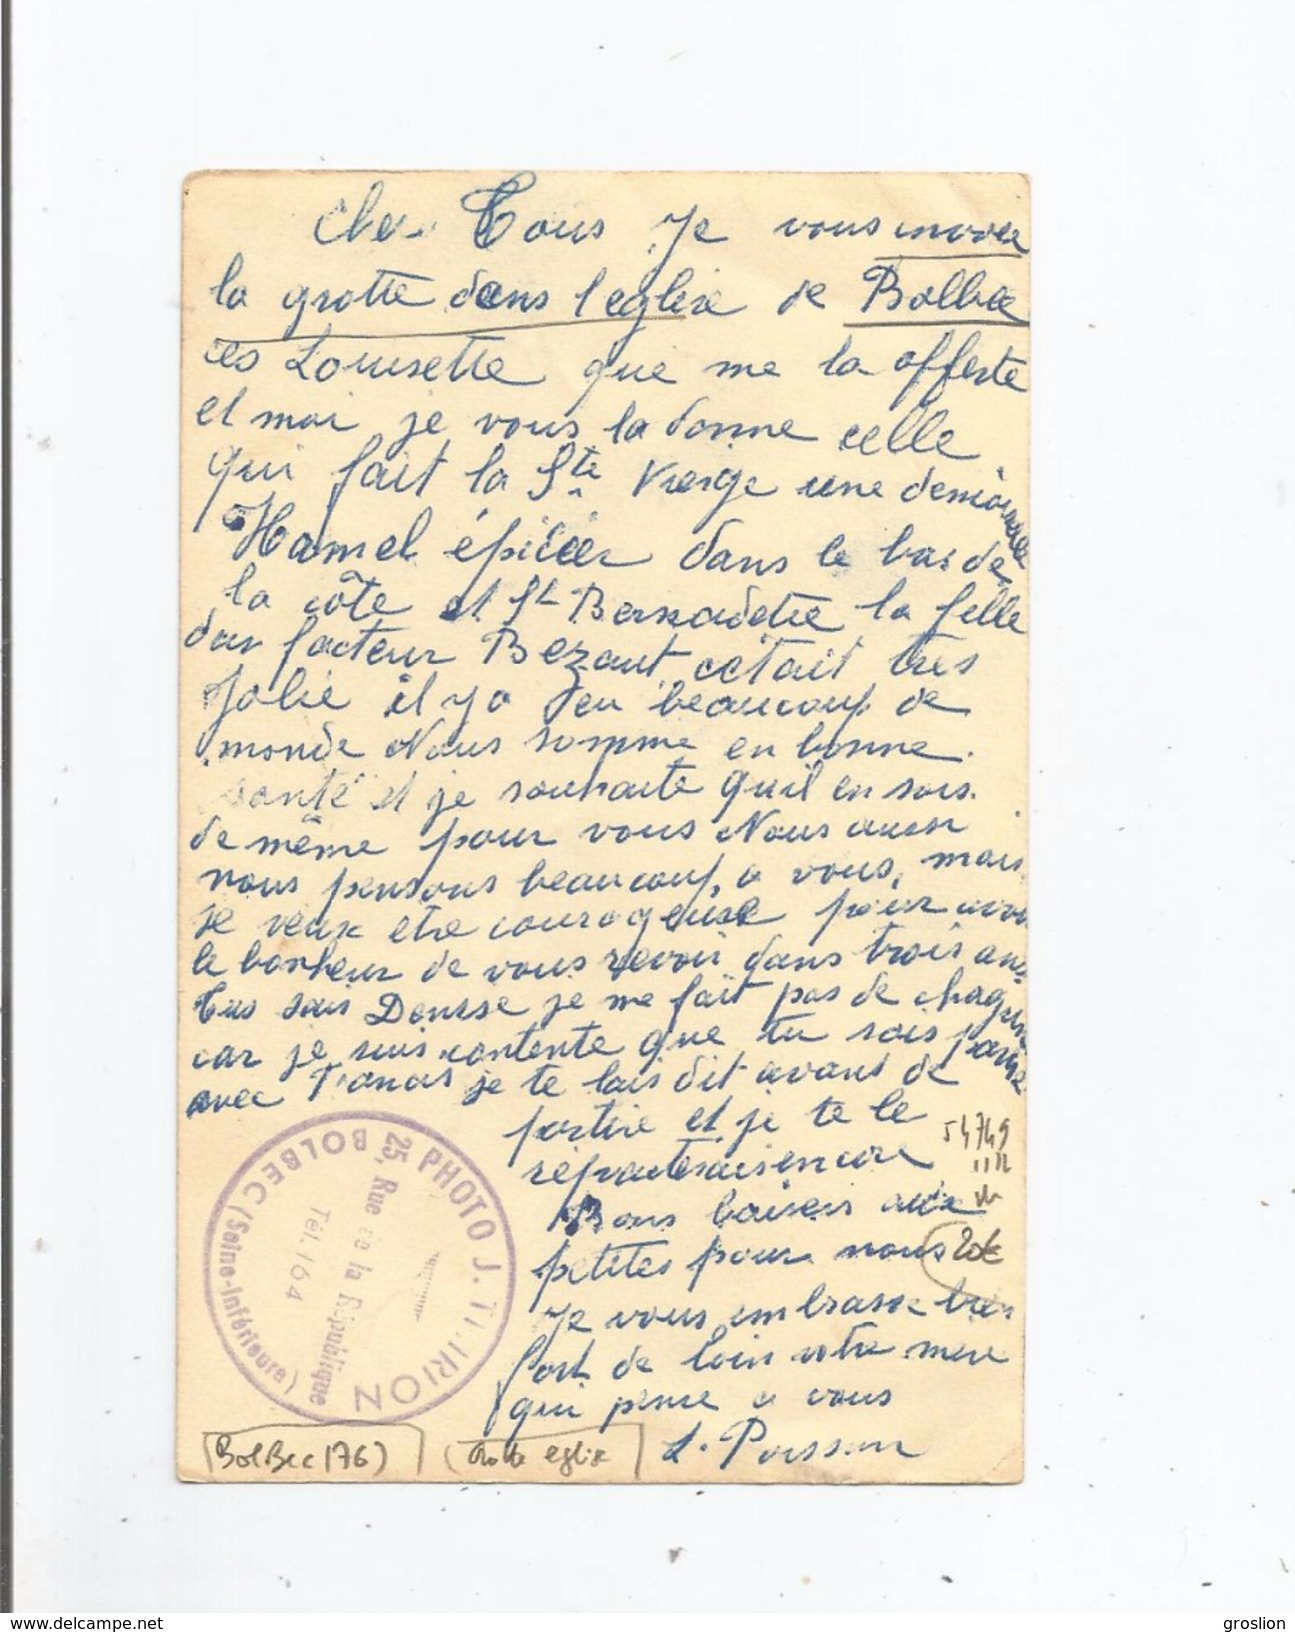 Cher Tous Je vous envoie
la grotte dans l'eglise de Bolbec
ces Louisette que me la offerte
et moi je vous la donne celle
qui fait la Ste Vierge une demoiselle
Hamel épicier dans le bas de
la côte et St Bernadette la fille
du facteur Bezaut cétait tres
Jolie il y a eu beaucoup de
monde Nous somme en bonne
santé et je souhaite qu'il en sois
de même pour vous Nous aussi
nous pensons beaucoup a vous, mais
je veux etre courageuse pour avoir
le bonheur de vous revoir dans trois ans
tus sais Denise je me fait pas de chagrin
car je suis contente que tu sois partie
avec je te lais dit avant de
partire et je te le
encore
Bons baisers aux
petites pour nous
Je vous embrasse tres
fort de loin votre mere
qui pense a vous
L. Poisson
PHOTO J. THIRION
25, Rue de la République
Tél. 164
BOLBEC (Seine-Inférieure)
54749
20€
BolBec (76)
Grotte eglise
www.delcampe.net
groslion